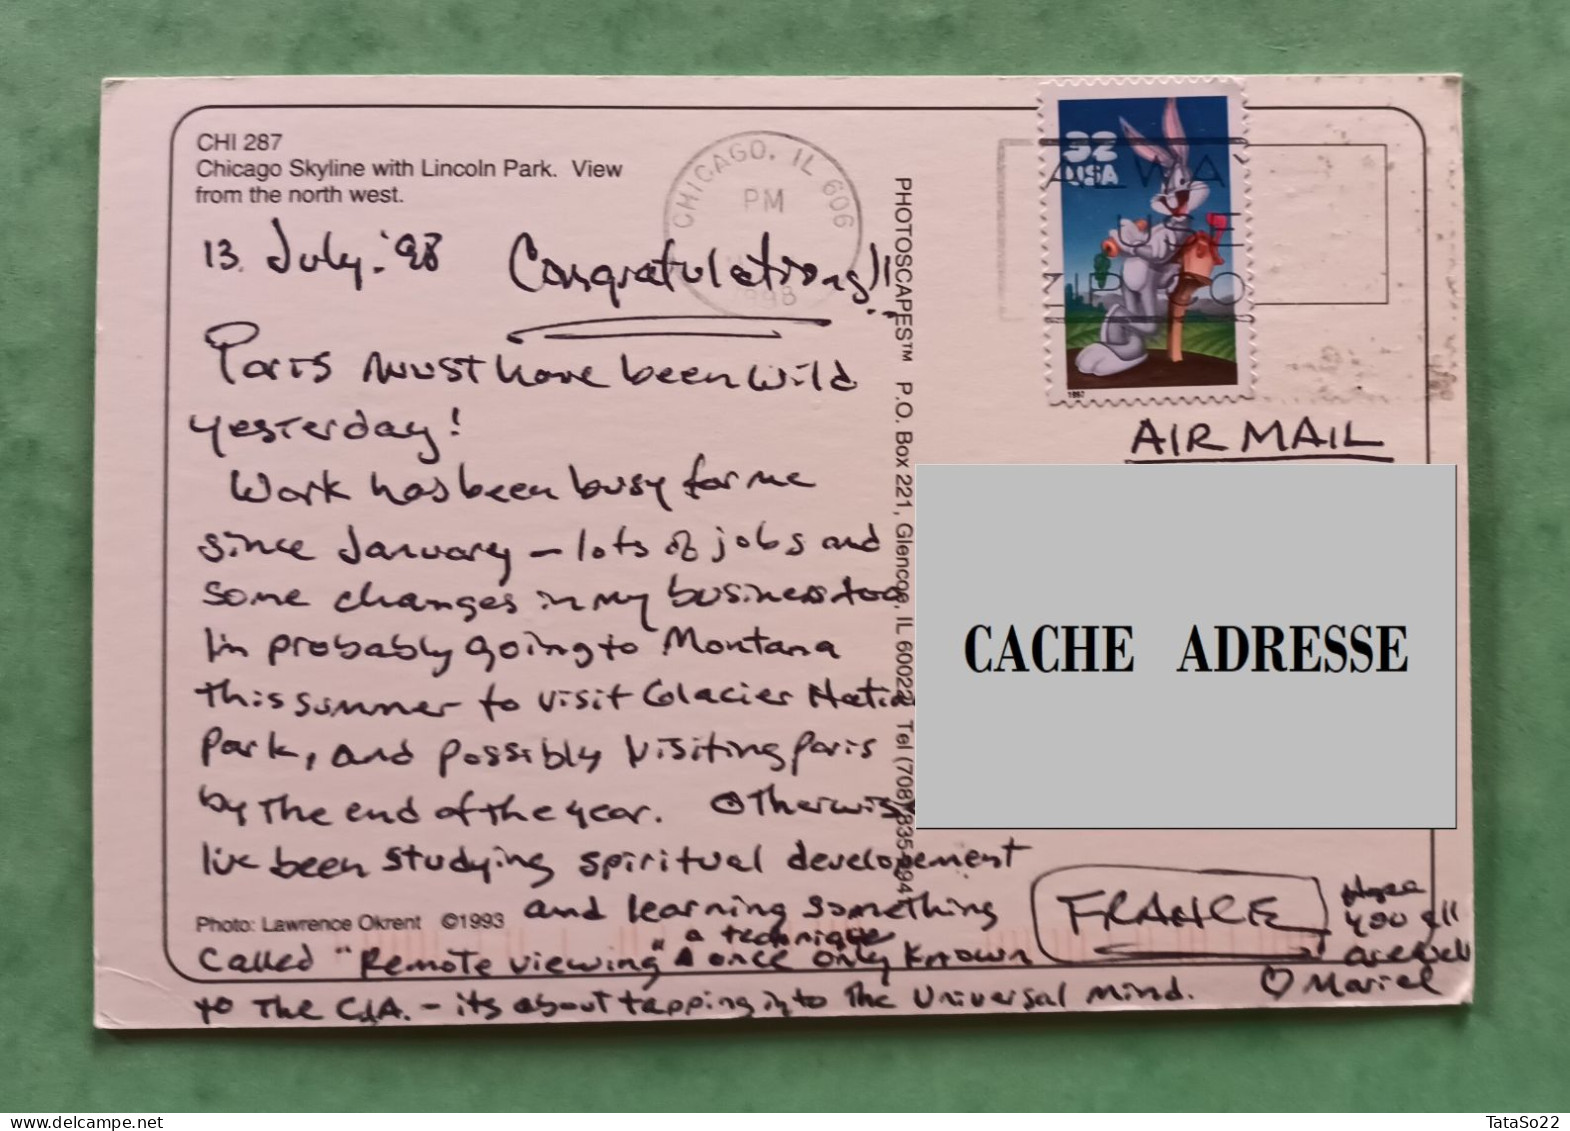 CHI 287
Chicago Skyline with Lincoln Park. View
from the north west.
13. July. '98 Congratulations!!
Paris must have been wild
yesterday!
Work has been busy for me
since January – lots of jobs and
some changes in my business too
I'm probably going to Montana
this summer to visit Glacier
Park, and possibly visiting Paris
by the end of the year. Otherwise
I've been studying spiritual developement
and learning something
Photo: Lawrence Okrent ©1993
called "Remote viewing" a technique once only known
to the CIA. – its about tapping into the Universal mind.
CHICAGO, IL 606
PM
1998
PHOTOSCAPES™ P.O. Box 221, Glencoe, IL 60022 Tel (708)
32
USA
1997
ALWA
USE
ZIP CO
AIR MAIL
CACHE ADRESSE
FRANCE
you all
are well
♡ Mariel
TataSo22
delcampe.net